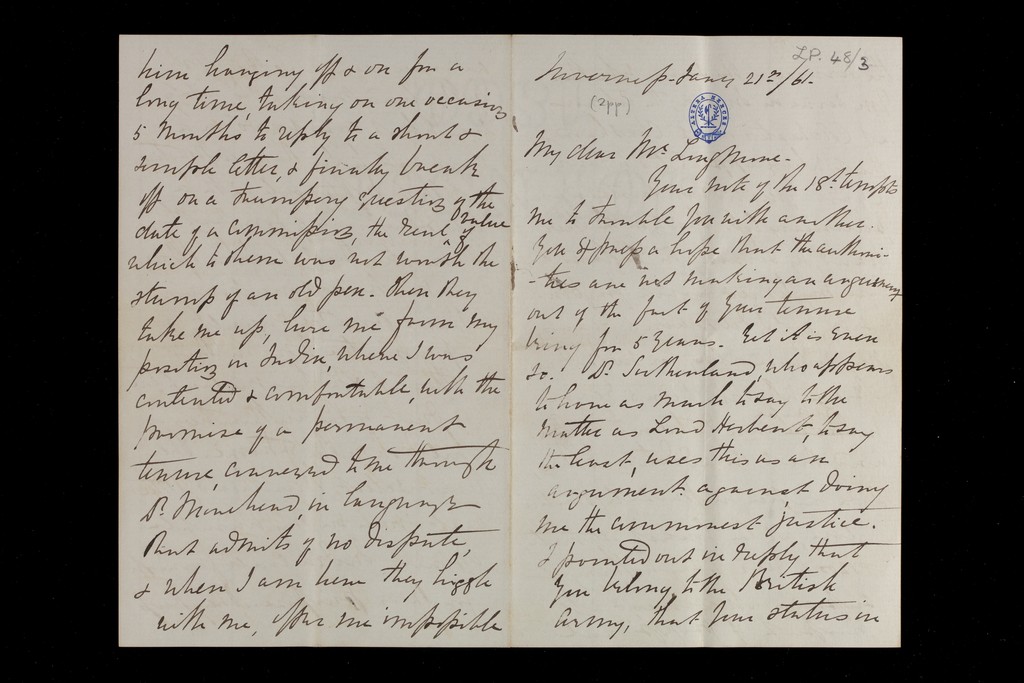 him hanging off & on for a
long time, taking on one occasion
5 months to reply to a short &
simple letter, & finally break
off on a trumpery question of the
date of a commission, the real value
of
which to them was not worth the
stump of an old pen. Then they
take me up, lure me from my
position in India, where I was
contented & comfortable, with the
promise of a permanent
tenure, conveyed to me through
Dr. Morehead, in language
that admits of no dispute,
& when I am here they higgle
with me, offer me impossible
L.P. 48/3
Inverness. Jany 21st/61.
(2pp)
My dear Mr. Longmore.
Your note of the 18th. tempts
me to trouble you with another.
You express a hope that the authori-
-ties are not making an argument
out of the fact of your tenure
being for 5 years. Yet it is even
so. Dr. Sutherland, who appears
to have as much to say to the
matter as Lord Herbert, to say
the least, uses this as an
argument against doing
me the commonest justice.
I pointed out in reply that
you belong to the British
Army, that your status in